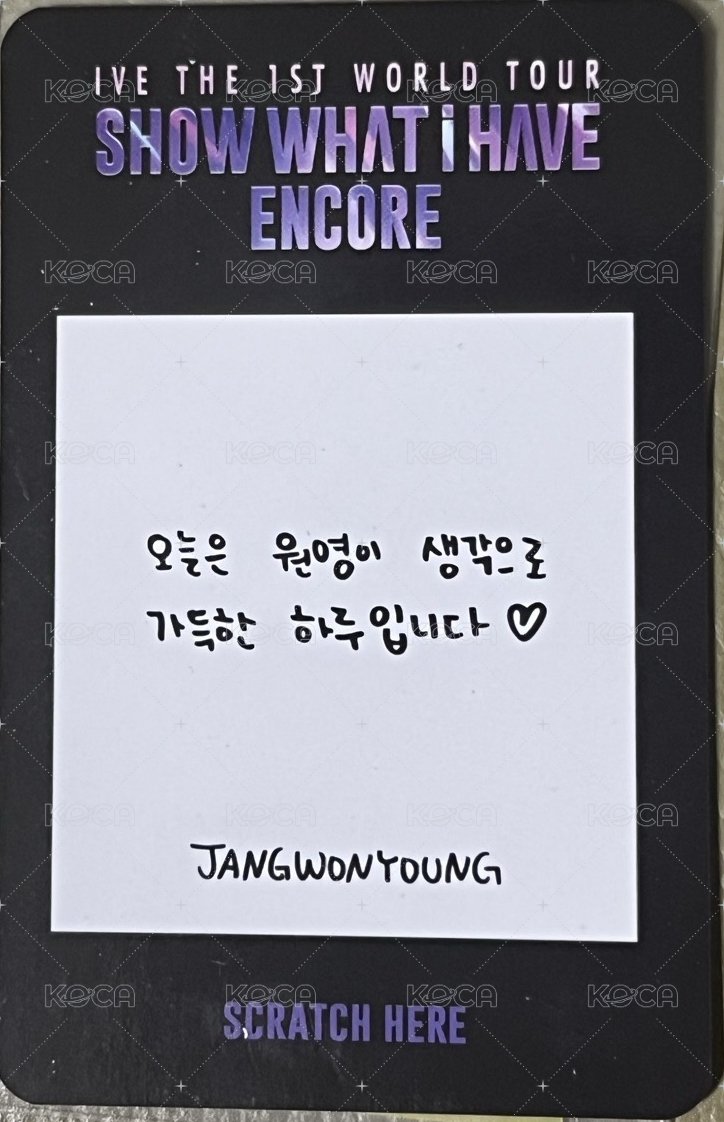 IVE THE 1ST WORLD TOUR
SHOW WHAT i HAVE
ENCORE
오늘은 원영이 생각으로
가득한 하루입니다 ♡
JANGWONYOUNG
SCRATCH HERE
KOCA